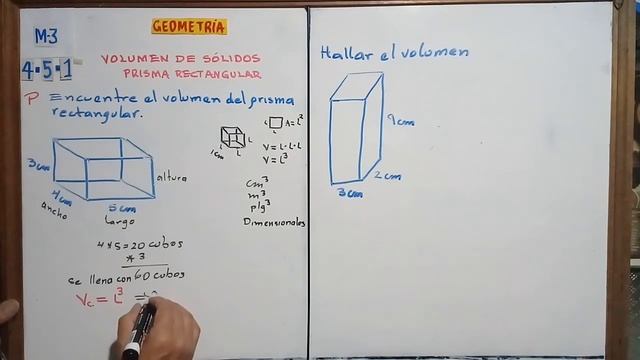 GEOMETRÍA
M-3
4.5.1
VOLUMEN DE SÓLIDOS
PRISMA RECTANGULAR
P Encuentre el volumen del prisma
rectangular.
3cm
4cm
Ancho
5cm
Largo
altura
1cm
L
L
L
L
A=L²
V=L·L·L
V=L³
cm³
m³
plg³
Dimensionales
4*5=20 cubos
*3
se llena con 60 cubos
Vc = L³ =
Hallar el volumen
9cm
2cm
3cm